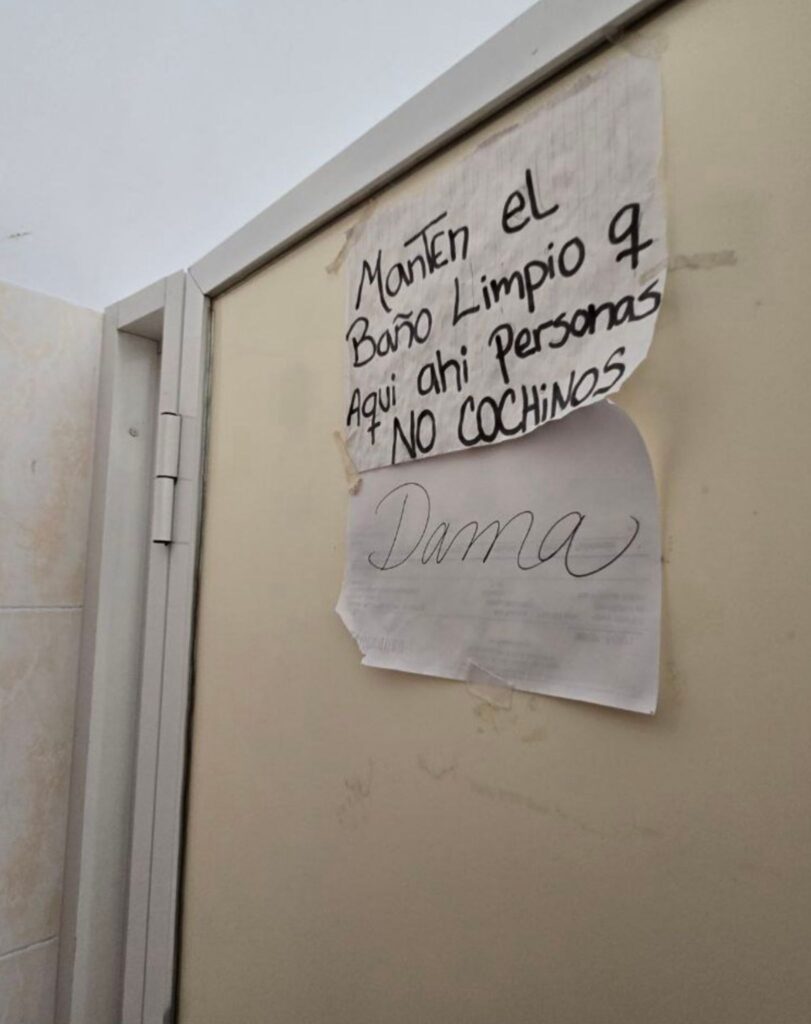 Manten el
Baño Limpio q
Aqui ahi Personas
NO COCHiNOS
Dama